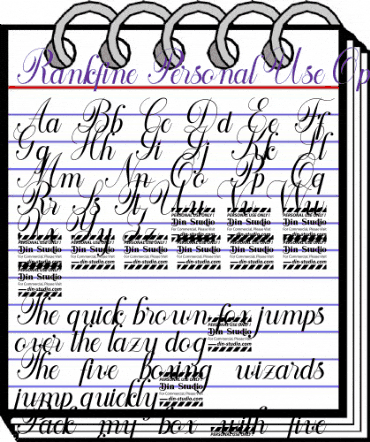 Rankfine Personal Use Op
Aa Bb Cc Dd Ee Ff
Gg Hh Ii Jj Kk Ll
Mm Nn Oo Pp Qq
Rr Ss Tt Uu
PERSONAL USE ONLY!
Din Studio
For Commercial, Please Visit
din-studio.com
The quick brown fox jumps
over the lazy dog
The five boxing wizards
jump quickly
Pack my box with five